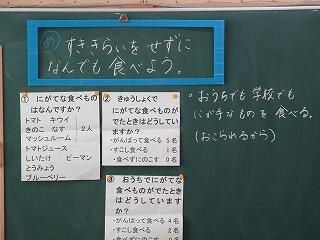 め すききらいをせずに
なんでも食べよう。
① にがてな食べもの
はなんですか?
トマト キウイ
きのこ なす 2人
マッシュルーム
トマトジュース
しいたけ ピーマン
とうみょう
ブルーベリー
② きゅうしょくで
にがてな食べものが
でたときはどうしてい
ますか?
・がんばって食べる 4名
・すこし食べる 1名
・食べずにのこす 0名
③ おうちでにがてな
食べものがでたときは
どうしていますか?
・がんばって食べる 2名
・すこし食べる 2名
・おうちでも学校でも
にが手なものを食べる。
(おこられるから)